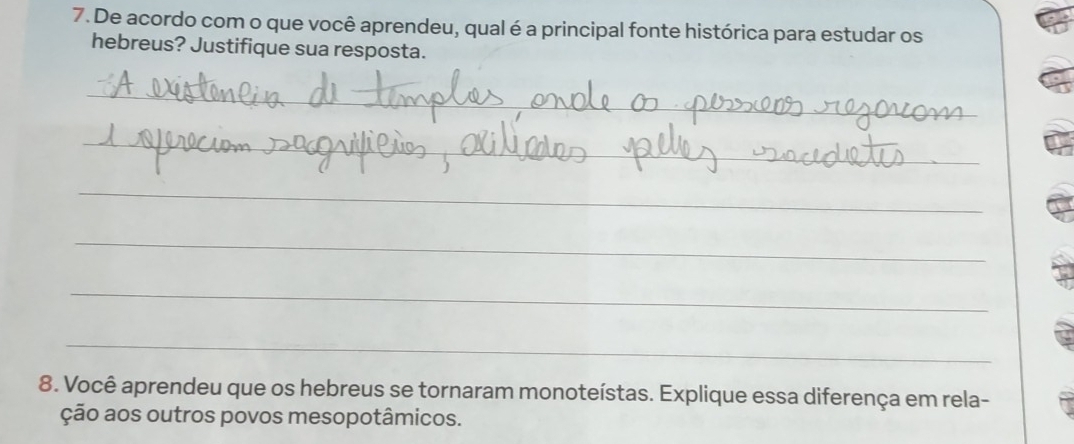 7. De acordo com o que você aprendeu, qual é a principal fonte histórica para estudar os
hebreus? Justifique sua resposta.
A existencia de templos onde as pessoas resavam
e ofereciam sacrificios, pelos
8. Você aprendeu que os hebreus se tornaram monoteístas. Explique essa diferença em rela-
ção aos outros povos mesopotâmicos.